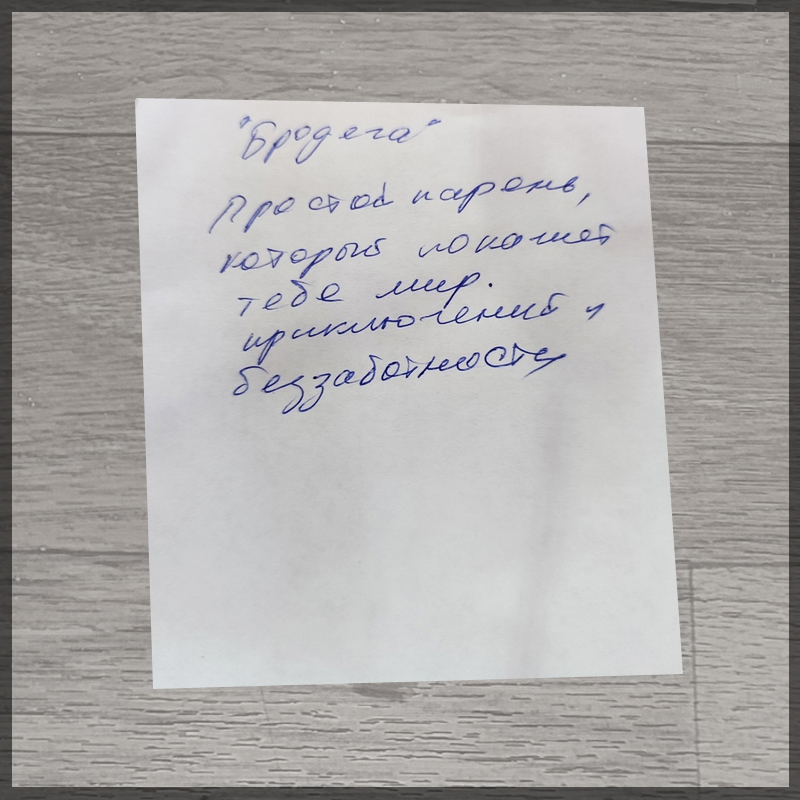 "Бродяга"
Простой парень,
который покажет
тебе мир.
приключений и
беззаботности